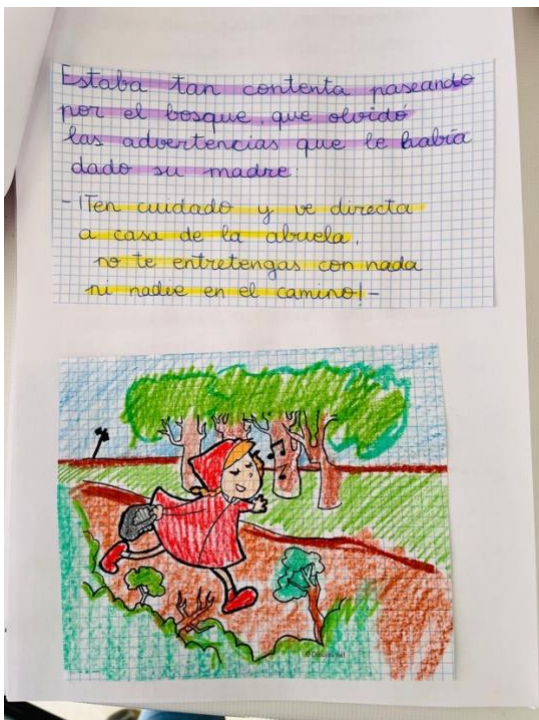 Estaba tan contenta paseando
por el bosque, que olvidó
las advertencias que le había
dado su madre:
-¡Ten cuidado y ve directa
a casa de la abuela,
no te entretengas con nada
ni nadie en el camino!-